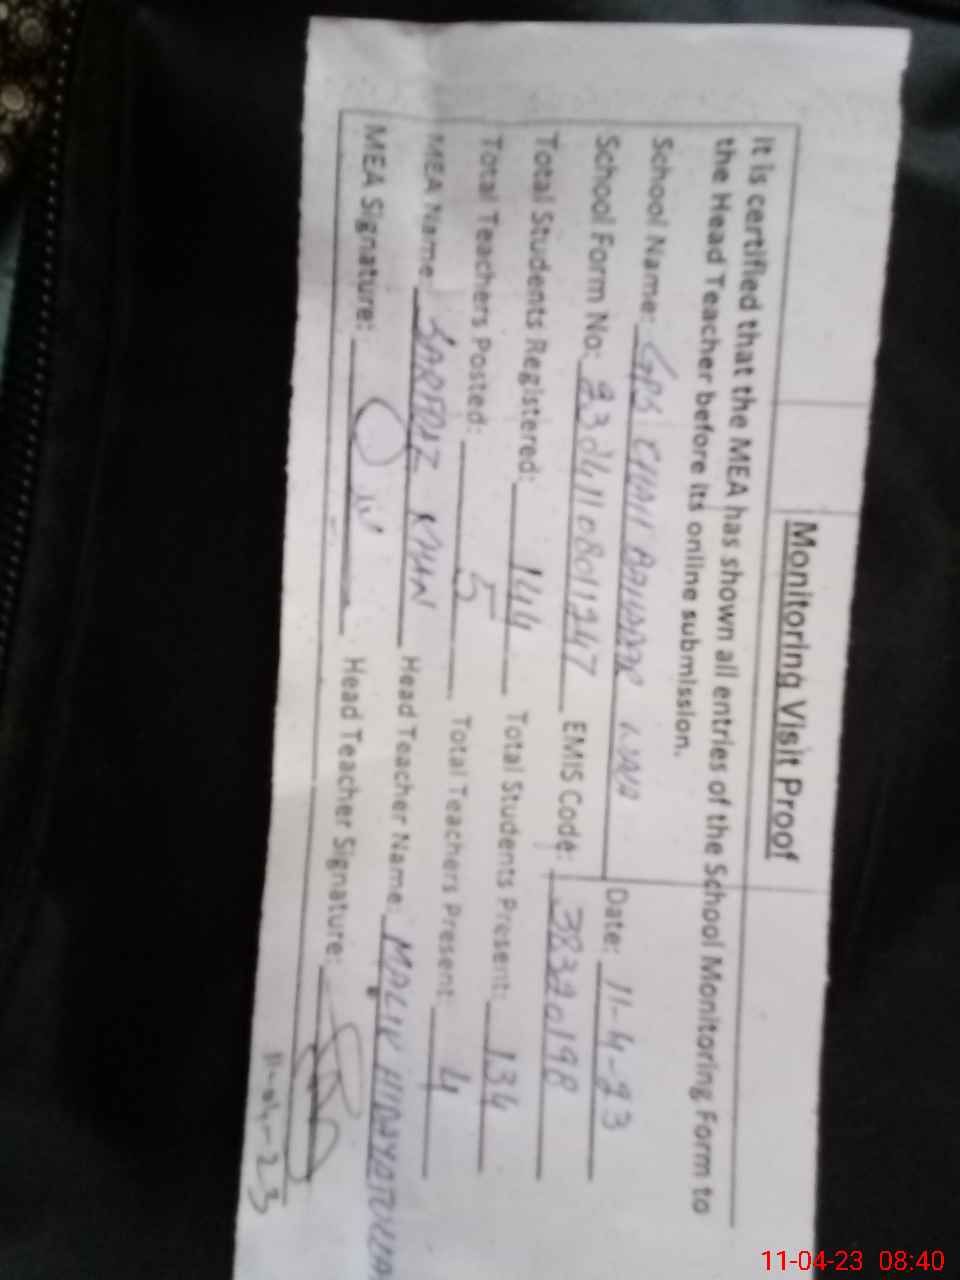 Monitoring Visit Proof
It is certified that the MEA has shown all entries of the School Monitoring Form to
the Head Teacher before its online submission.
School Name: GPS CHAH BAHADAR Date: 11-4-23
School Form No: 23041108011247 EMIS Code: 38320198
Total Students Registered: 144 Total Students Present: 134
Total Teachers Posted: 5 Total Teachers Present: 4
MEA Name: SARFRAZ KHAN Head Teacher Name: MALIK HIDAYATULLAH
MEA Signature: Head Teacher Signature:
11-04-23
11-04-23 08:40